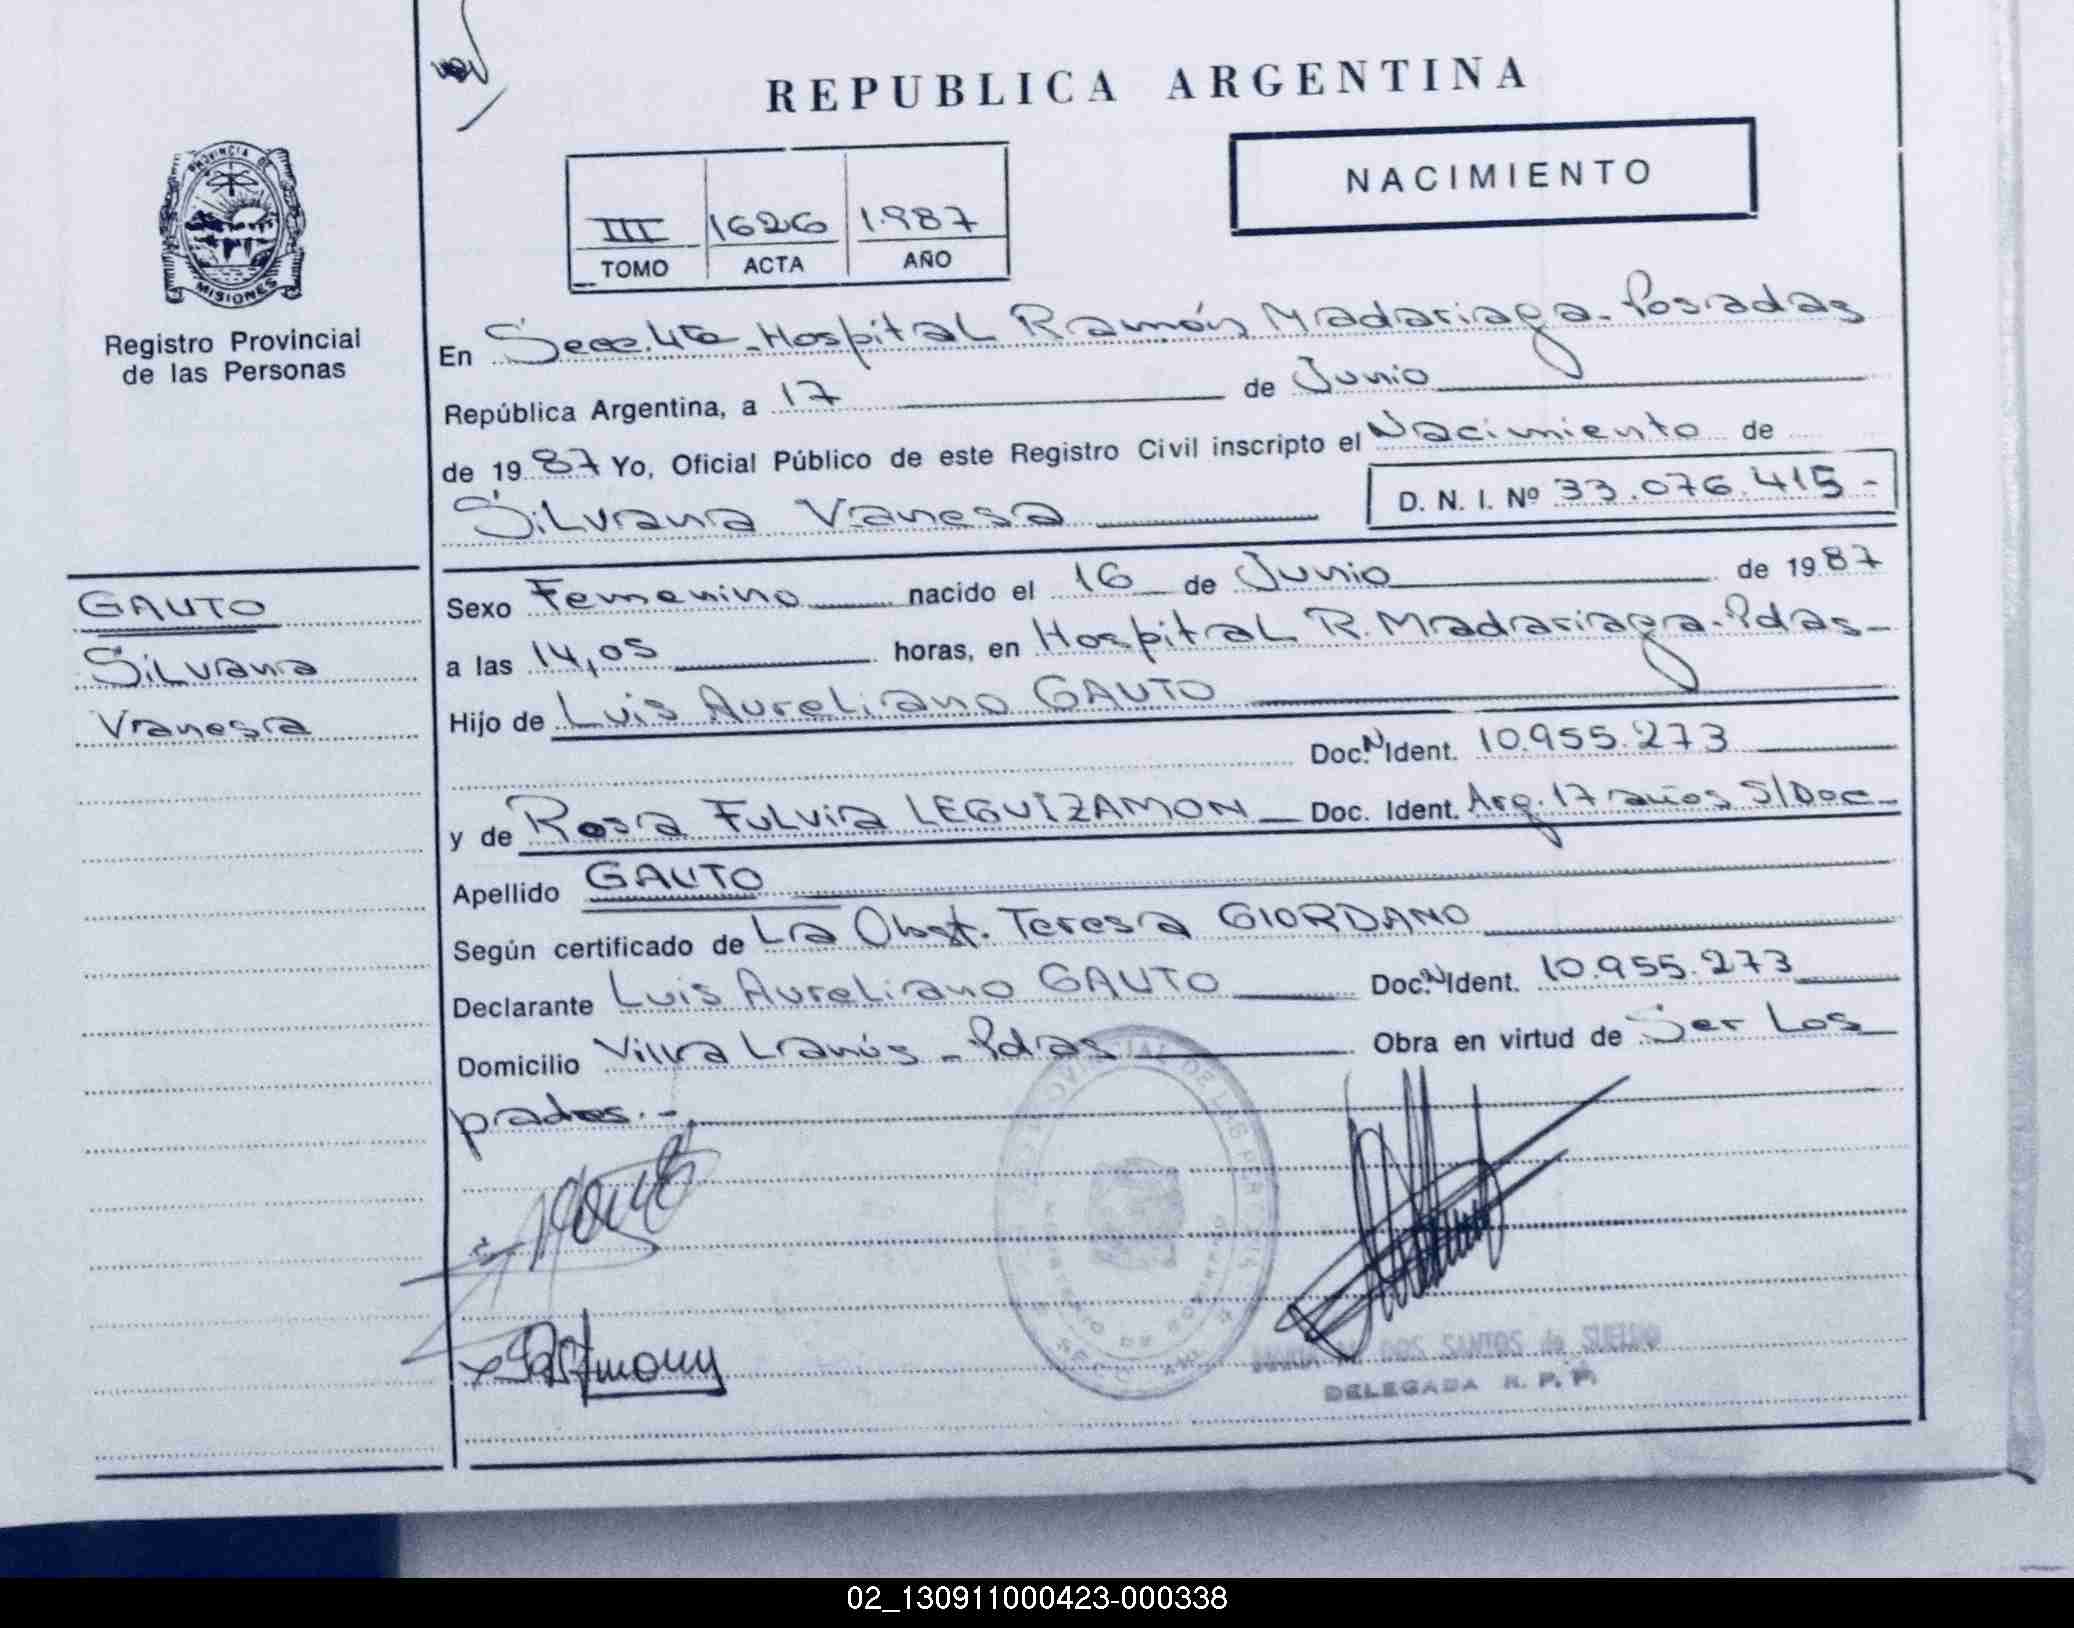 REPUBLICA ARGENTINA
NACIMIENTO
III 1626 1987
TOMO ACTA AÑO
PROVINCIA DE
MISIONES
Registro Provincial
de las Personas
En Secc. 4ta - Hospital Ramón Madariaga - Posadas
República Argentina, a 17 de Junio
de 1987 Yo, Oficial Público de este Registro Civil inscripto el Nacimiento de
Silvana Vanesa D. N. I. Nº 33.076.415 -
GAUTO
Silvana
Vanesa
Sexo Femenino nacido el 16 de Junio de 1987
a las 14,05 horas, en Hospital R. Madariaga - Pdas -
Hijo de Luis Aureliano GAUTO
Doc. N Ident. 10.955.273
y de Rosa Fulvia LEGUIZAMON Doc. Ident. Arg. 17 años S/Doc -
Apellido GAUTO
Según certificado de La Obst. Teresa GIORDANO
Declarante Luis Aureliano GAUTO Doc. N Ident. 10.955.273
Domicilio Villa Lanús - Pdas Obra en virtud de Ser Los
padres. -
DOS SANTOS de SUELDO
DELEGADA R. P. P.
02_130911000423-000338